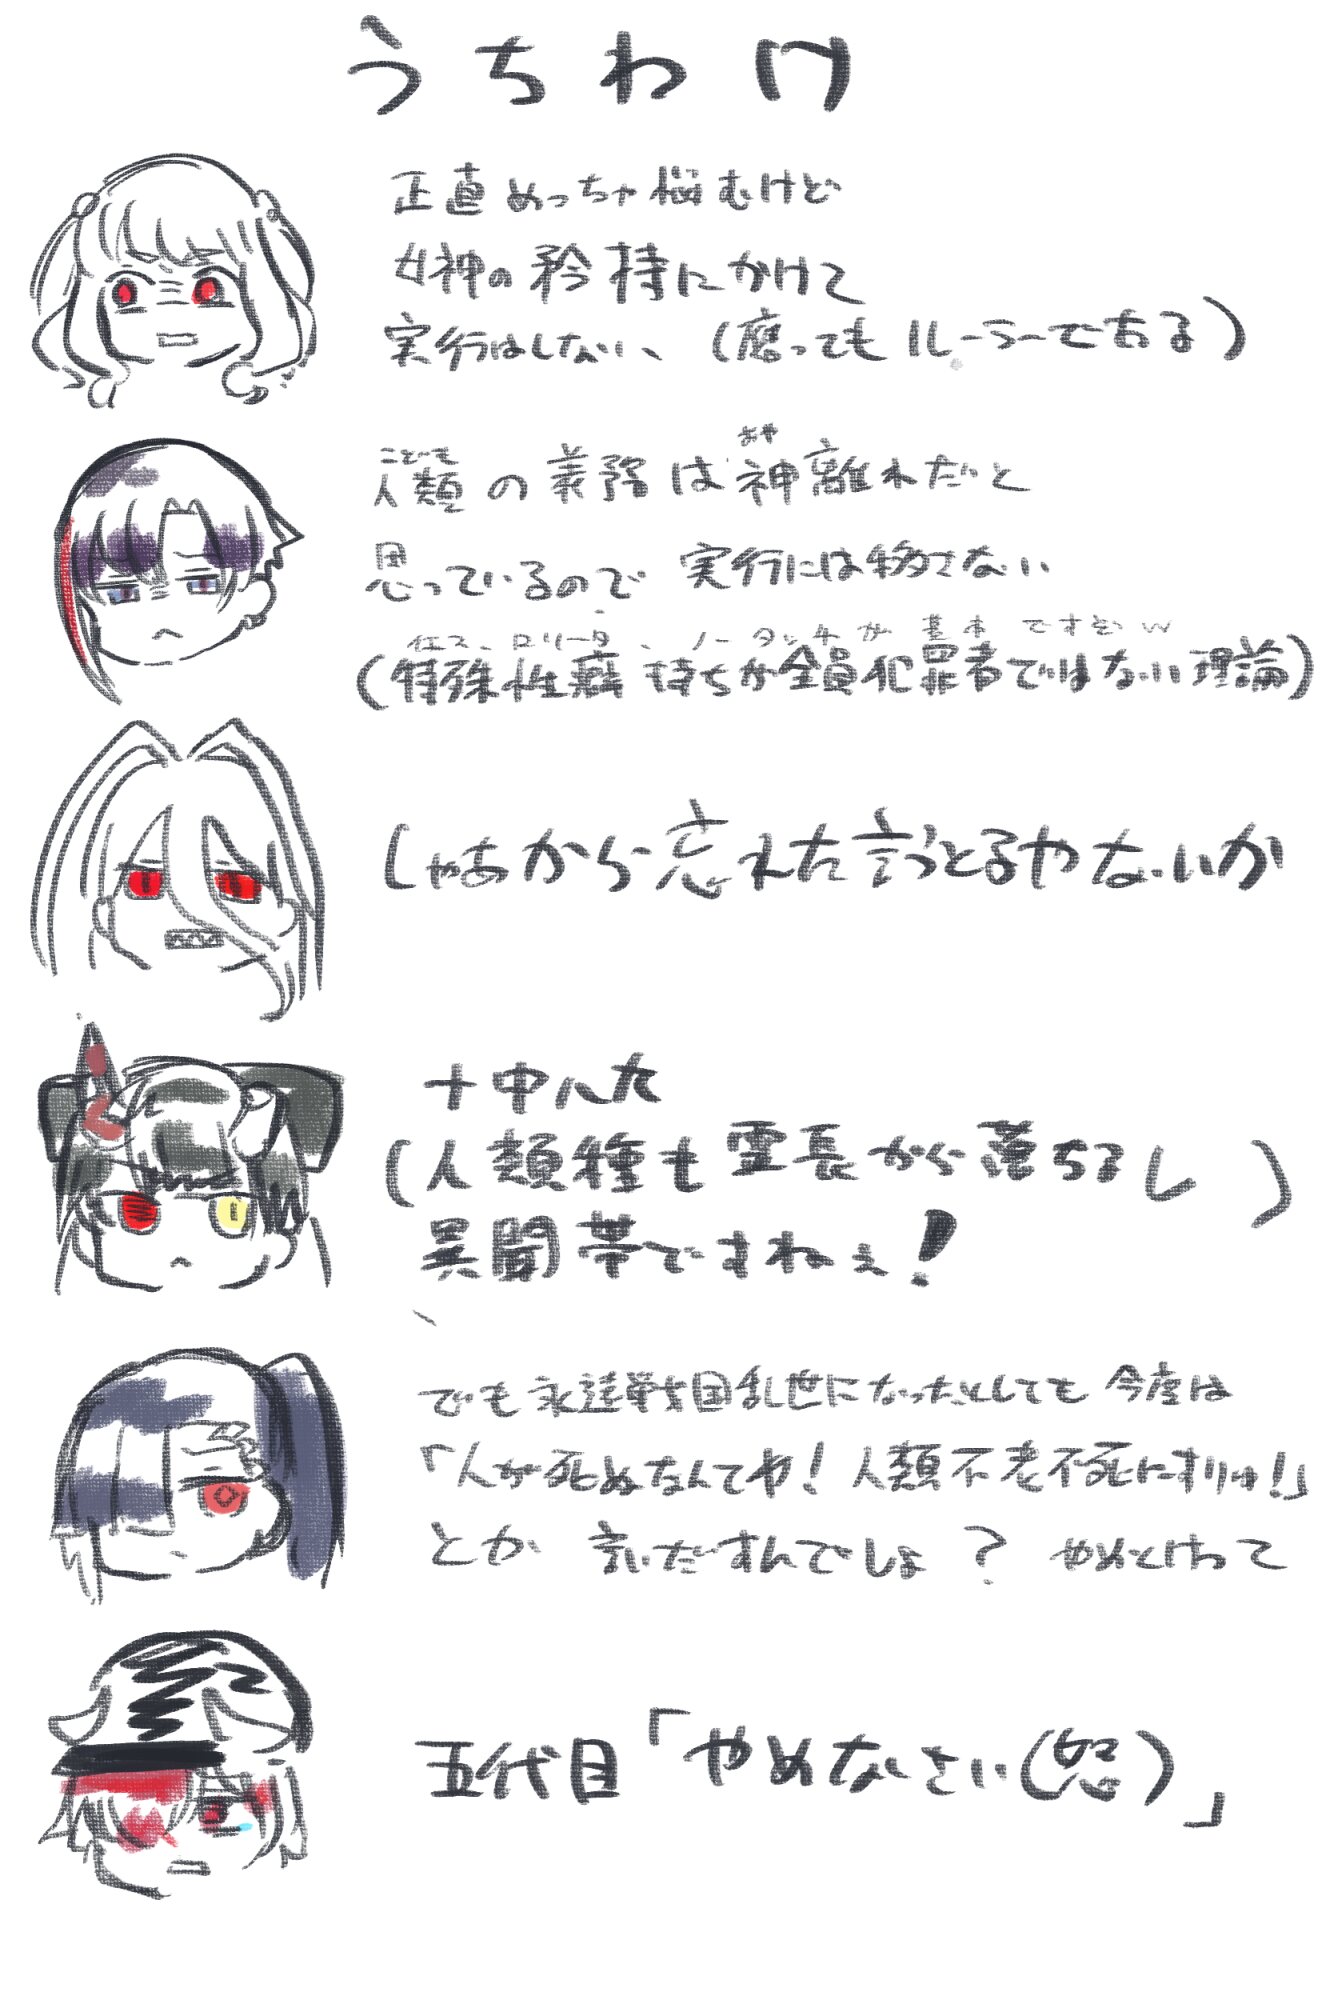 うちわけ
正直めっちゃ悩むけど
女神の矜持にかけて
実行はしない、(腐ってもルーラーである)
こども おや
人類の義務は神離れだと
思っているので 実行には移さない
イエス、ロリータ、ノータッチが基本ですぞw
(特殊性癖持ちが全員犯罪者ではない理論)
しゃあから忘れた言うとるやないか
十中八九
(人類種も霊長から落ちるし)
異聞帯ですねぇ!
でも永遠戦国乱世になったとしても今度は
「人が死ぬなんてヤ!人類不老不死にすりゅ!」
とか言いだすんでしょ?やめとけって
五代目「やめなさい(怒)」